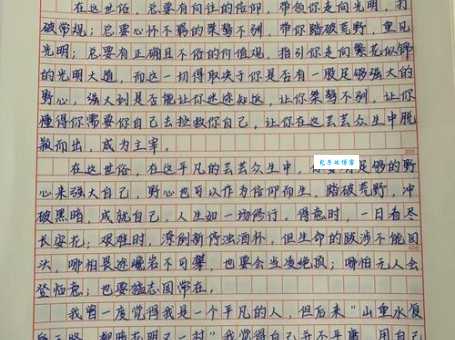 在这世俗,总要有向往的信仰,带领你走向光明,打
破常规;总要心怀不羁的桀骜不驯,带你踏破荒野,重见
光明;总要有正确且不俗的价值观,指引你走向繁花似锦
的光明大道,而这一切得取决于你是否有一股足够强大的
野心,强大到是否能让你迷途知返,让你桀骜不驯,让你
懂得你需要你自己去拯救你自己,让你在这芸芸众生中脱
颖而出,成为主宰。
在这世俗,在这平凡的芸芸众生中,有足够的野
心来强大自己,野心也可以作为信仰而生,踏破荒野,冲
破黑暗,成就自己,人生如一场修行,得意时,一日看尽
长安花;艰难时,潦倒新停浊酒杯,但生命的跋涉不能回
头,哪怕畏途巉岩不可攀,也要会当凌绝顶;哪怕无人会
登临意;也要猛志固常在。
我曾一度觉得我是一个平凡的人,但后来“山重水复
疑无路,柳暗花明又一村”我觉得自己并不平庸,用自己